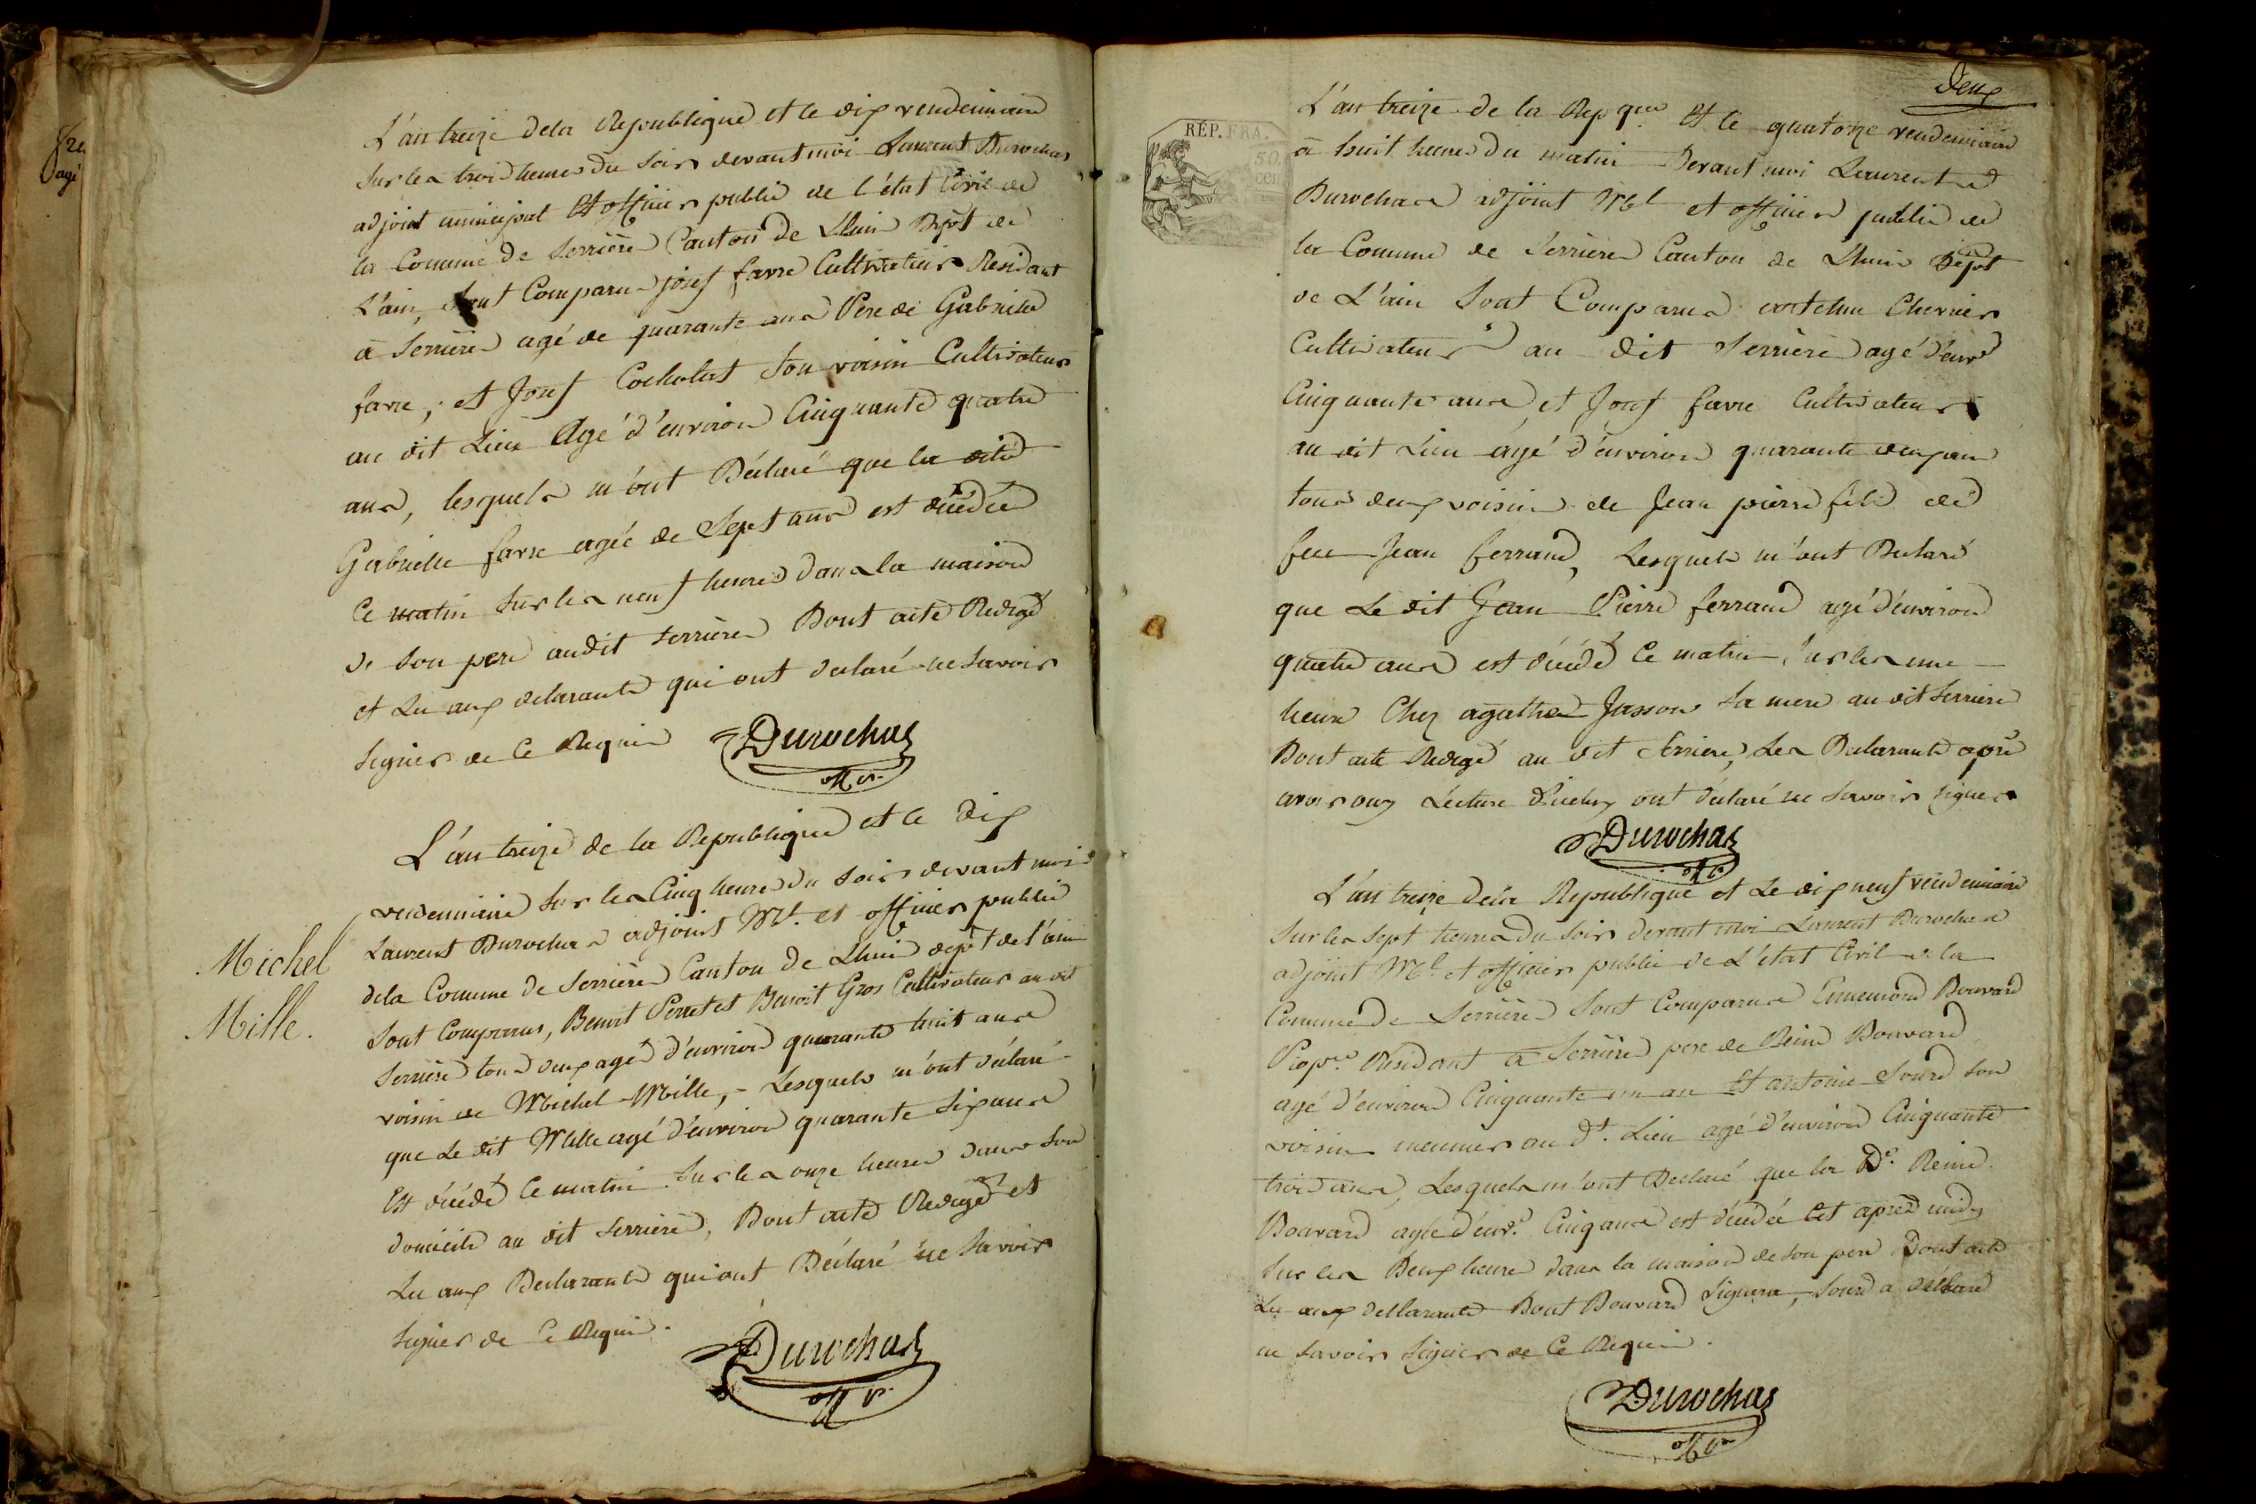 L'an treize dela Republique et le dix vendemiaire
Sur les trois heures du Soir devant moi Laurent Durochas
adjoint municipal et officier public de l'état Civil de
la Commune de Serrière Canton de Lhuis Dépt de
L'ain, Sont Comparus josef favre Cultivateur Residant
à Serrière agé de quarante ans Pere de Gabrielle
favre, et Josef Cocholat Son voisin Cultivateur
au dit Lieu Agé d'environ Cinquante quatre
ans, lesquels m'ont Déclaré que la dite
Gabrielle favre agée de Sept ans est décédée
Ce matin Sur les neuf heures dans la maison
de Son pere audit Serrière Dont acte Redigé
et Lu aux declarants qui ont declaré ne Savoir
Signer de Ce Requis Durochas
offr.
L'an treize de la Republique et le dix
vendemiaire Sur les Cinq heures du Soir devant moi
Laurent Durochas adjoint Ml. et officier public
dela Commune de Serrière Canton de Lhuis dept de l'ain
Michel
Mille.
Sont Comparus, Benoit Perret et Benoit Gros Cultivateur au dit
Serrière tous deux agés d'environ quarante huit ans
voisin de Michel Mille, Lesquels m'ont déclaré
que Le dit Mille agé d'environ quarante Six ans
Est décédé Ce matin Sur les onze heures dans Son
domicile au dit Serrière, Dont acte Redigé et
Lu aux Declarants qui ont Déclaré ne Savoir
Signer de Ce Requis.
Durochas
offr
Deux
RÉP. FRA.
50
cen
L'an treize de la Repque Et le quatorze vendemiaire
à huit heures du matin Devant moi Laurent
Durochas adjoint Ml et officier public de
la Commune de Serrière Canton de Lhuis Dépt
de L'ain Sont Comparus antelme Chervier
Cultivateur au dit Serrière agé d'envr
Cinquante ans et Josef favre Cultivateur
au dit Lieu agé d'environ quarante deux ans
tous deux voisins de Jean pierre fils de
feu Jean ferrand, Lesquels m'ont Declaré
que Le dit Jean Pierre ferrand agé d'environ
quatre ans est décédé Ce matin Sur les une
heure Chez agathe Jasson Sa mere au dit Serrière
Dont acte Redigé au dit Serrière, Les Declarants après
avoir ouy Lecture d'iceluy ont declaré ne Savoir Signer
Durochas
offr
L'an treize dela Republique et Le dix neuf vendemiaire
Sur les Sept heures du Soir devant moi Laurent Durochas
adjoint Ml et officier public de L'etat Civil de la
Commune de Serrière Sont Comparus Ennemond Bouvard
Propre. Residant à Serrière pere de Reine Bouvard
agé d'environ Cinquante un an Et antoine Sourd Son
voisin meunier au dt. Lieu agé d'environ Cinquante
trois ans, Lesquels m'ont Declaré que la De. Reine
Bouvard agée d'envr. Cinq ans est décédée Cet après midy
Sur les Deux heures dans la maison de Son pere Dont acte
Lu aux declarants Dont Bouvard Signera, Sourd a déclaré
ne Savoir Signer de Ce Requis.
Durochas
offr